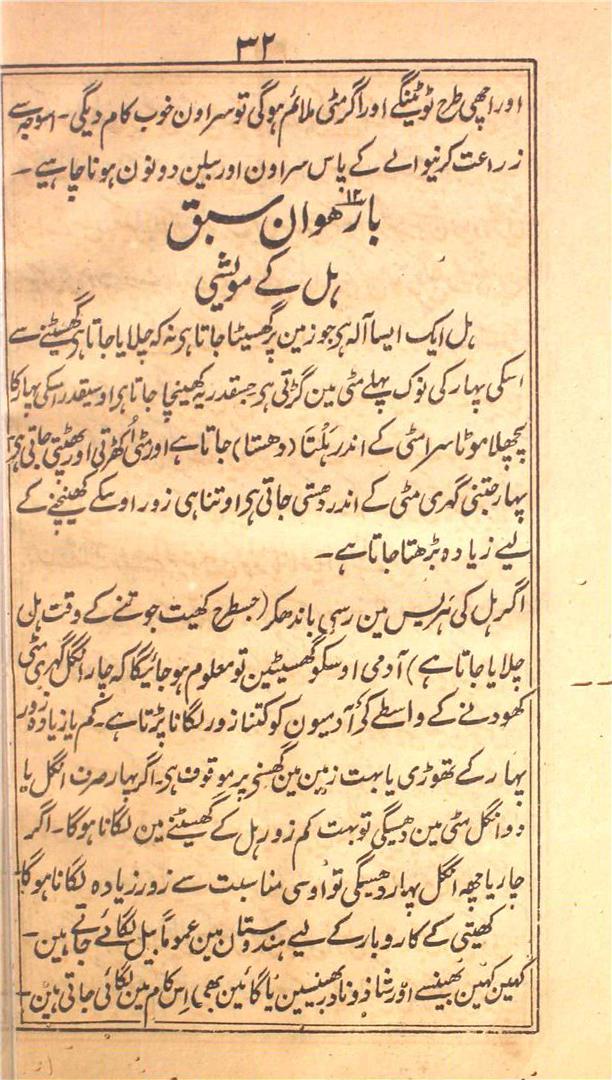 ۳۲
اور اچھی طرح ٹوٹینگے اور اگر مٹی ملائم ہوگی تو سراون خوب کام دیگی۔ اسوجہ سے
زراعت کرنیوالے کے پاس سراون اور بیلن دونون ہونا چاہیے۔
بارھوان سبق ۱۲
ہل کے مویشی
ہل ایک ایسا آلہ ہی جو زمین پر گھسیٹا جاتا ہی نہ کہ چلایا جاتا ہی گھسیٹنے سے
اسکی پھار کی نوک پہلے مٹی مین گڑتی ہی جسقدر یہ کھینچا جاتا ہی اوسیقدر اسکی پھار کا
پچھلا موٹا سرا مٹی کے اندر ہَلْتا (دھستا) جاتا ہے اور مٹی اُکھڑتی اور پھٹتی جاتی ہی
پھار جتنی گہری مٹی کے اندر دھستی جاتی ہی اوتنا ہی زور اوسکے کھینچنے کے
لیے زیادہ بڑھتا جاتا ہے۔
اگر ہل کی ہَریس مین رسی باندھکر (جسطرح کھیت جوتنے کے وقت ہل
چلایا جاتا ہے) آدمی اوسکو گھسیٹین تو معلوم ہو جائیگا کہ چار انگل گہری مٹی
کھودنے کے واسطے کَی آدمیون کو کتنا زور لگانا پڑتا ہے۔ کم یا زیادہ زور
پھار کے تھوڑی یا بہت زمین مین گھسنے پر موقوف ہی۔ اگر پھار صرف انگل یا
دو انگل مٹی مین دھسیگی تو بہت کم زور ہل کے گھسیٹنے مین لگانا ہوگا۔ اگر
چار یا چھہ انگل پھار دھسیگی تو اُوسی مناسبت سے زور زیادہ لگانا ہوگا
کھیتی کے کاروبار کے لیے ہندوستان مین عموماً بیل لگائے جاتے ہین۔
کہین کہین بھینسے اور شاذ و نادر بھینسین یا گائین بھی) اِس کام مین لگائی جاتی ہین۔